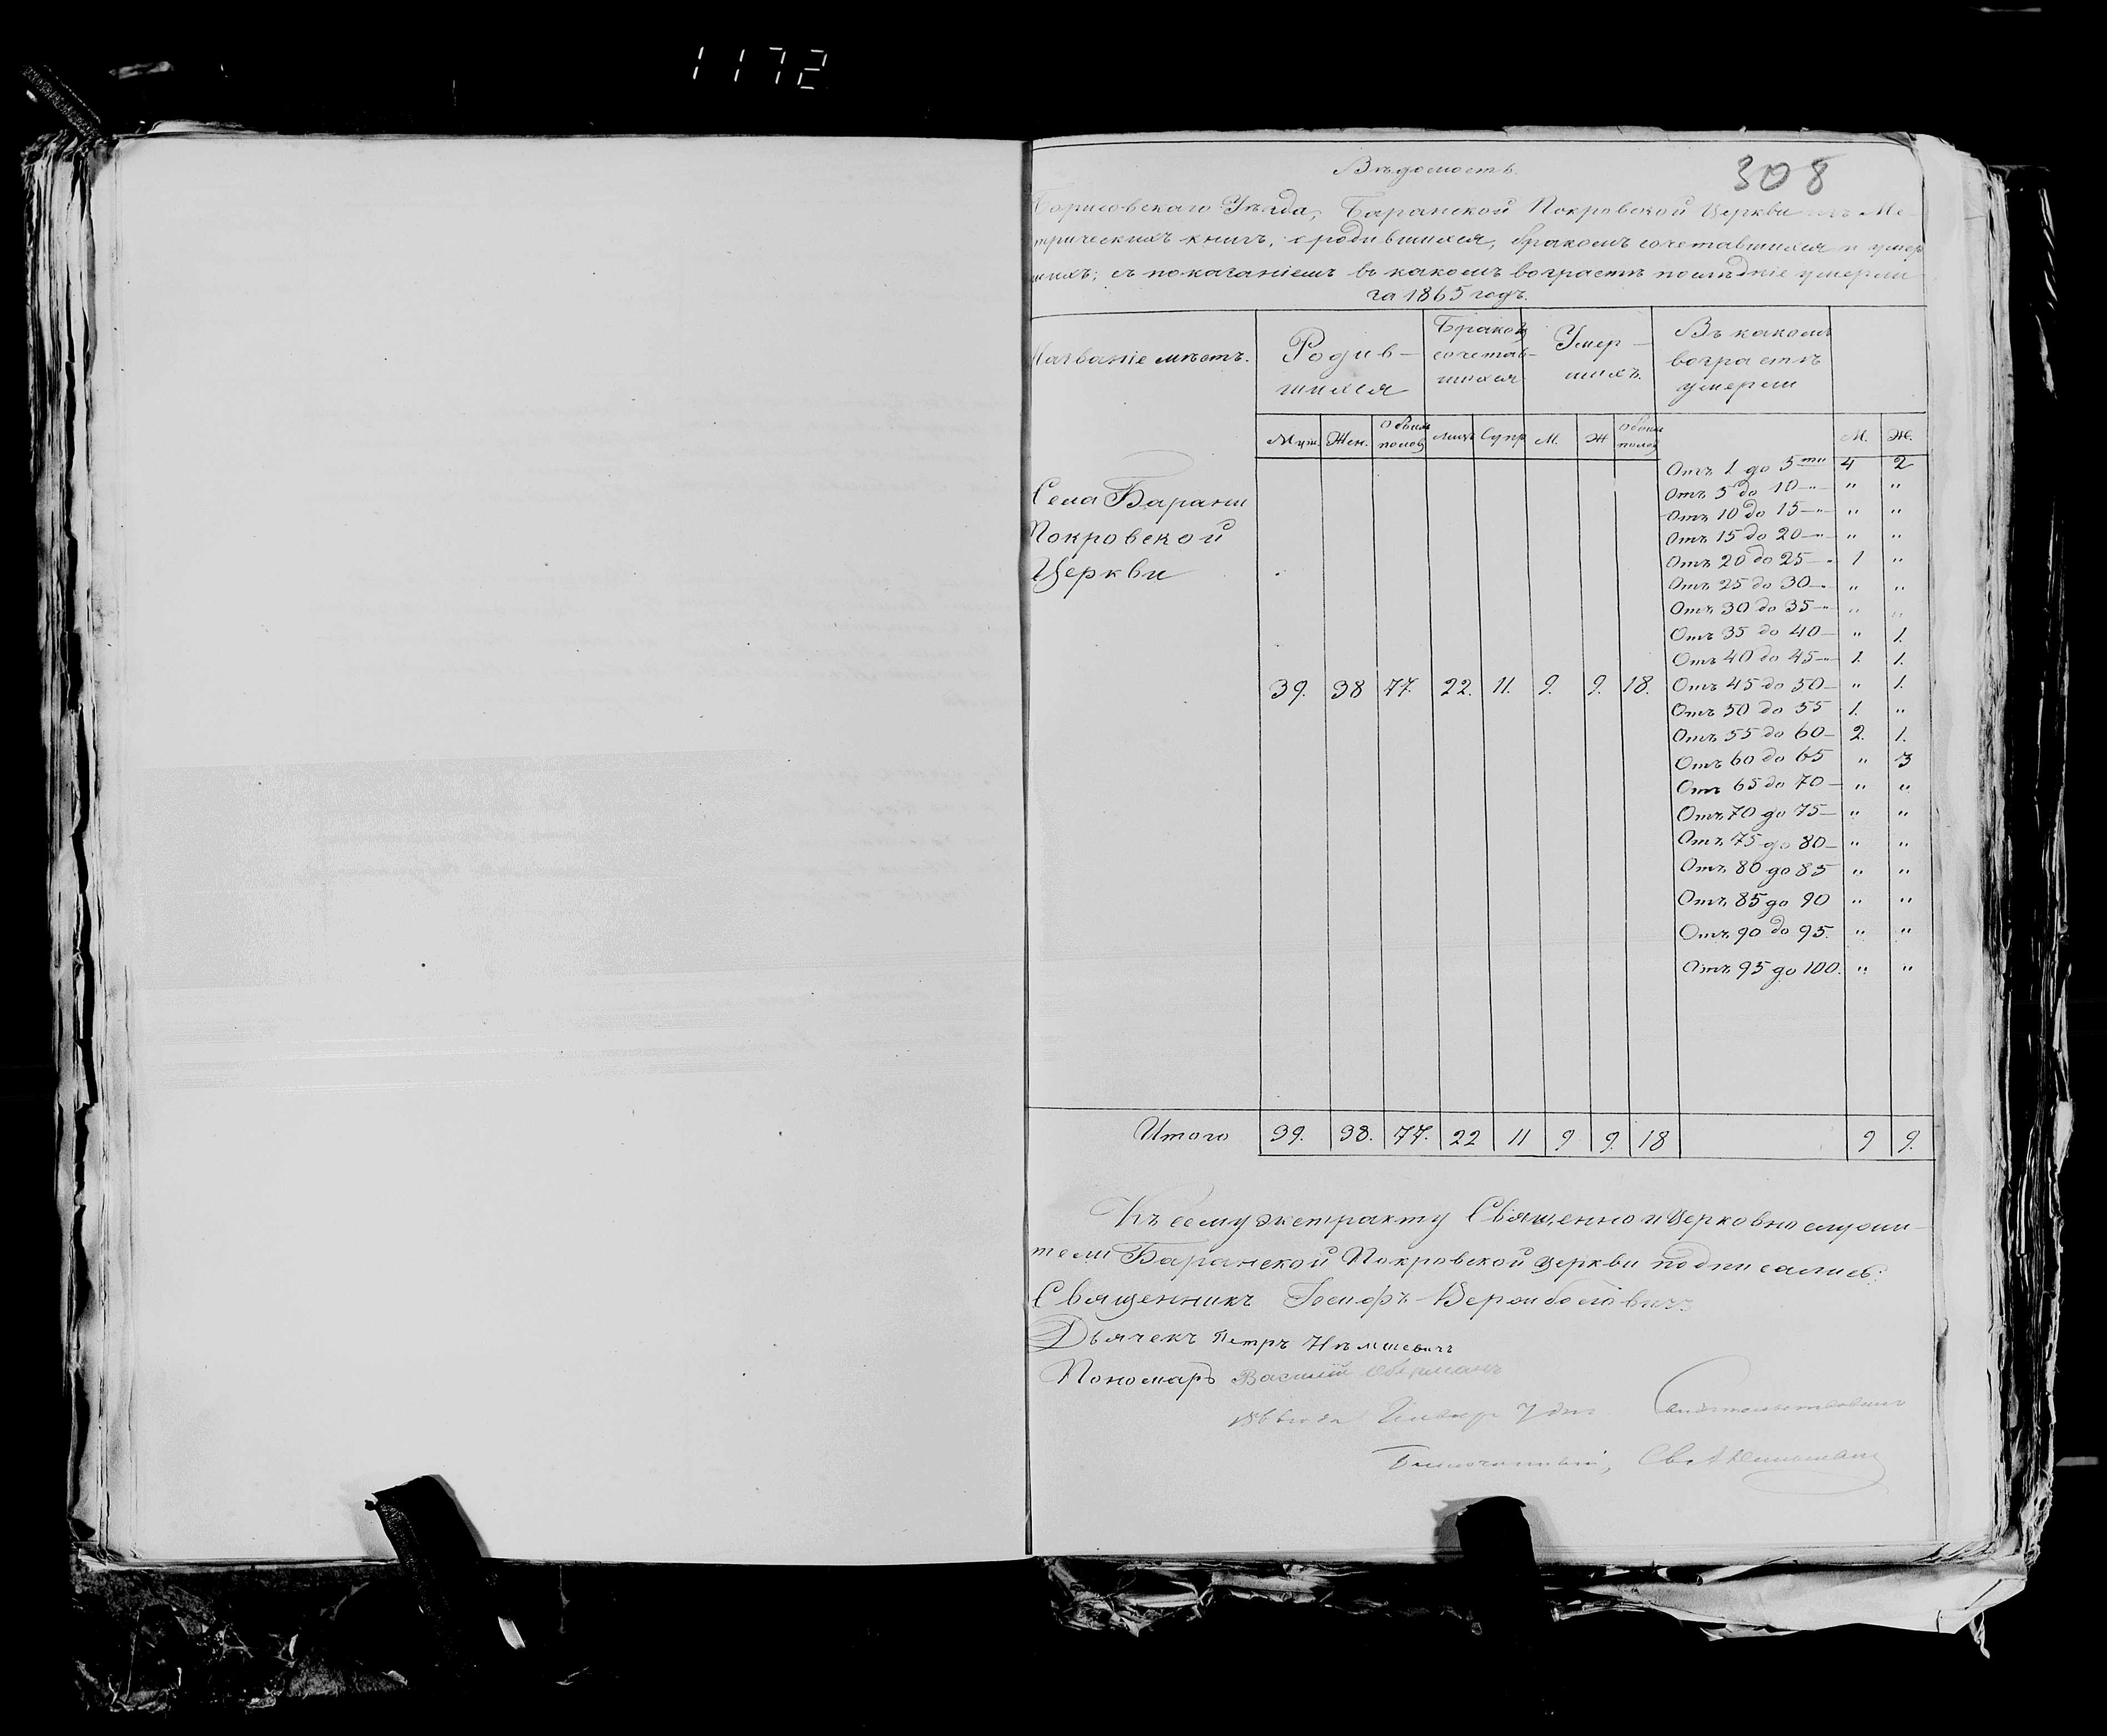 1172
308
Вѣдомость.
Борисовскаго Уѣзда, Баранской Покровской Церкви изъ Ме-
трическихъ книгъ, о родившихся, бракомъ сочетавшихся и умер
шихъ; съ показаніемъ въ какомъ возрастѣ послѣдніе умерли
за 1865 годъ.
Названіе мѣстъ. Родив- Браком Умер- Въ какомъ
шихся сочетав- шихъ. возрастѣ
шихся умерли
Муж. Жен. Обоихъ половъ лицъ Супр М. Ж Обоихъ половъ М. Ж.
Отъ 1 до 5ти 4 2
Села Барани Отъ 5 до 10 " " "
Отъ 10 до 15 " " "
Покровской Отъ 15 до 20 " " "
Церкви Отъ 20 до 25 " 1 "
Отъ 25 до 30 " " "
Отъ 30 до 35 " " "
Отъ 35 до 40 " 1.
Отъ 40 до 45 " 1. 1.
39. 38 77. 22. 11. 9. 9. 18. Отъ 45 до 50 " 1.
Отъ 50 до 55 1. "
Отъ 55 до 60 2. 1.
Отъ 60 до 65 " 3
Отъ 65 до 70 " "
Отъ 70 до 75 " "
Отъ 75 до 80 " "
Отъ 80 до 85 " "
Отъ 85 до 90 " "
Отъ 90 до 95. " "
Отъ 95 до 100. " "
Итого 39. 38. 77. 22 11 9 9. 18 9 9.
Къ сему экстракту Священно и Церковнослужи-
тели Баранской Покровской Церкви подписались:
Священникъ Іосифъ Вержболовичъ
Дьячекъ Петръ Нѣмшевичъ
Пономарь Василій Оберманъ
1866 года Января 7 дня Свидѣтельствовалъ
Благочинный, Св.